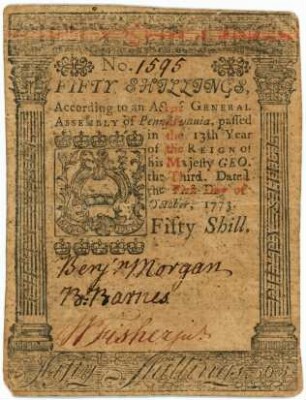 No. 1595
FIFTY SHILLINGS,
According to an Act of GENERAL
ASSEMBLY of Pennsylvania, passed
in the 13th Year
of the REIGN of
his Majesty GEO.
the Third. Dated
the First Day of
October, 1773.
Fifty Shill.
Benj'n Morgan
B. Barnes
W Fisher jun
Fifty Shillings